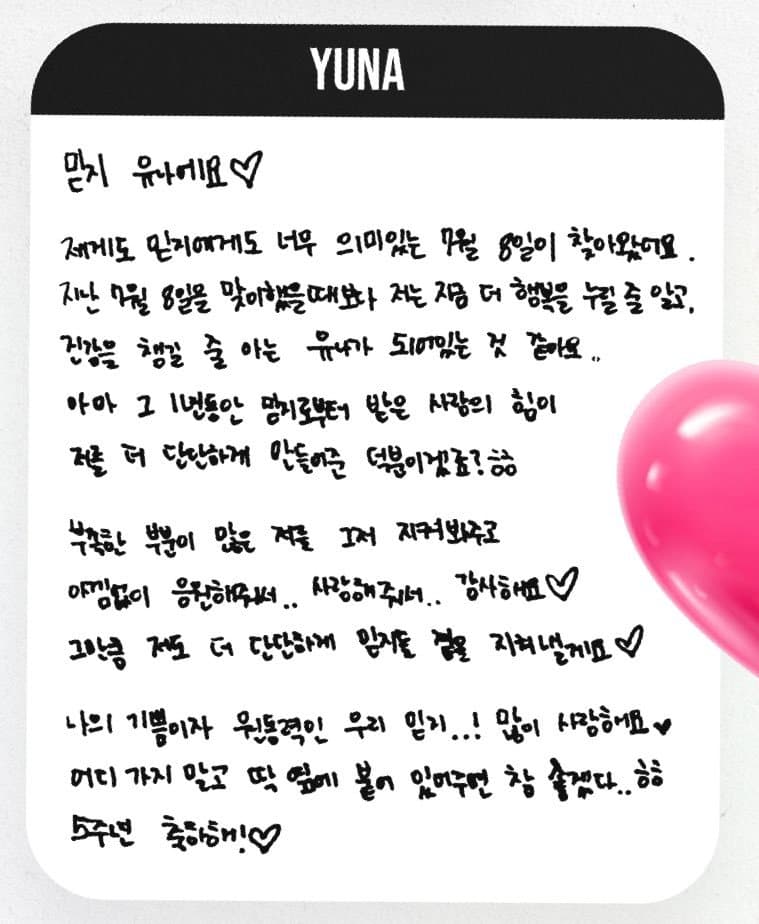 YUNA
믿지 유나에요♡
제게도 믿지에게도 너무 의미있는 7월 8일이 찾아왔어요.
지난 7월 8일을 맞이했을때보다 저는 지금 더 행복을 누릴 줄 알고,
건강을 챙길 줄 아는 유나가 되어있는 것 같아요..
아마 그 1년동안 믿지로부터 받은 사랑의 힘이
저를 더 단단하게 만들어준 덕분이겠죠? ㅎㅎ
부족한 부분이 많은 저를 그저 지켜봐주고
아낌없이 응원해줘서.. 사랑해줘서.. 감사해요♡
그만큼 저도 더 단단하게 믿지들 곁을 지켜낼게요♡
나의 기쁨이자 원동력인 우리 믿지..! 많이 사랑해요♥
어디 가지 말고 딱 옆에 붙어 있어주면 참 좋겠다.. ㅎㅎ
5주년 축하해!♡